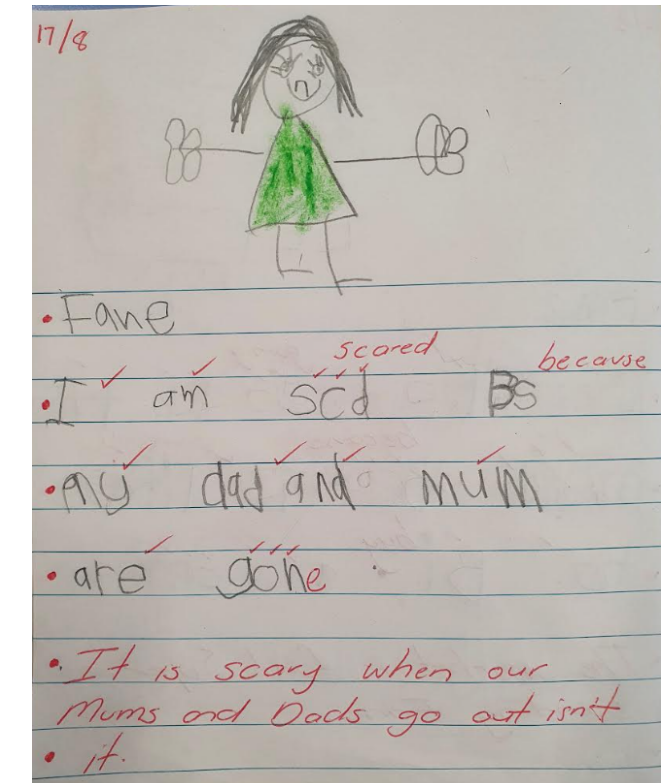 17/8
Fane
scared because
I am scd Bs
my dad and mum
are gone
It is scary when our
Mums and Dads go out isn't
it.